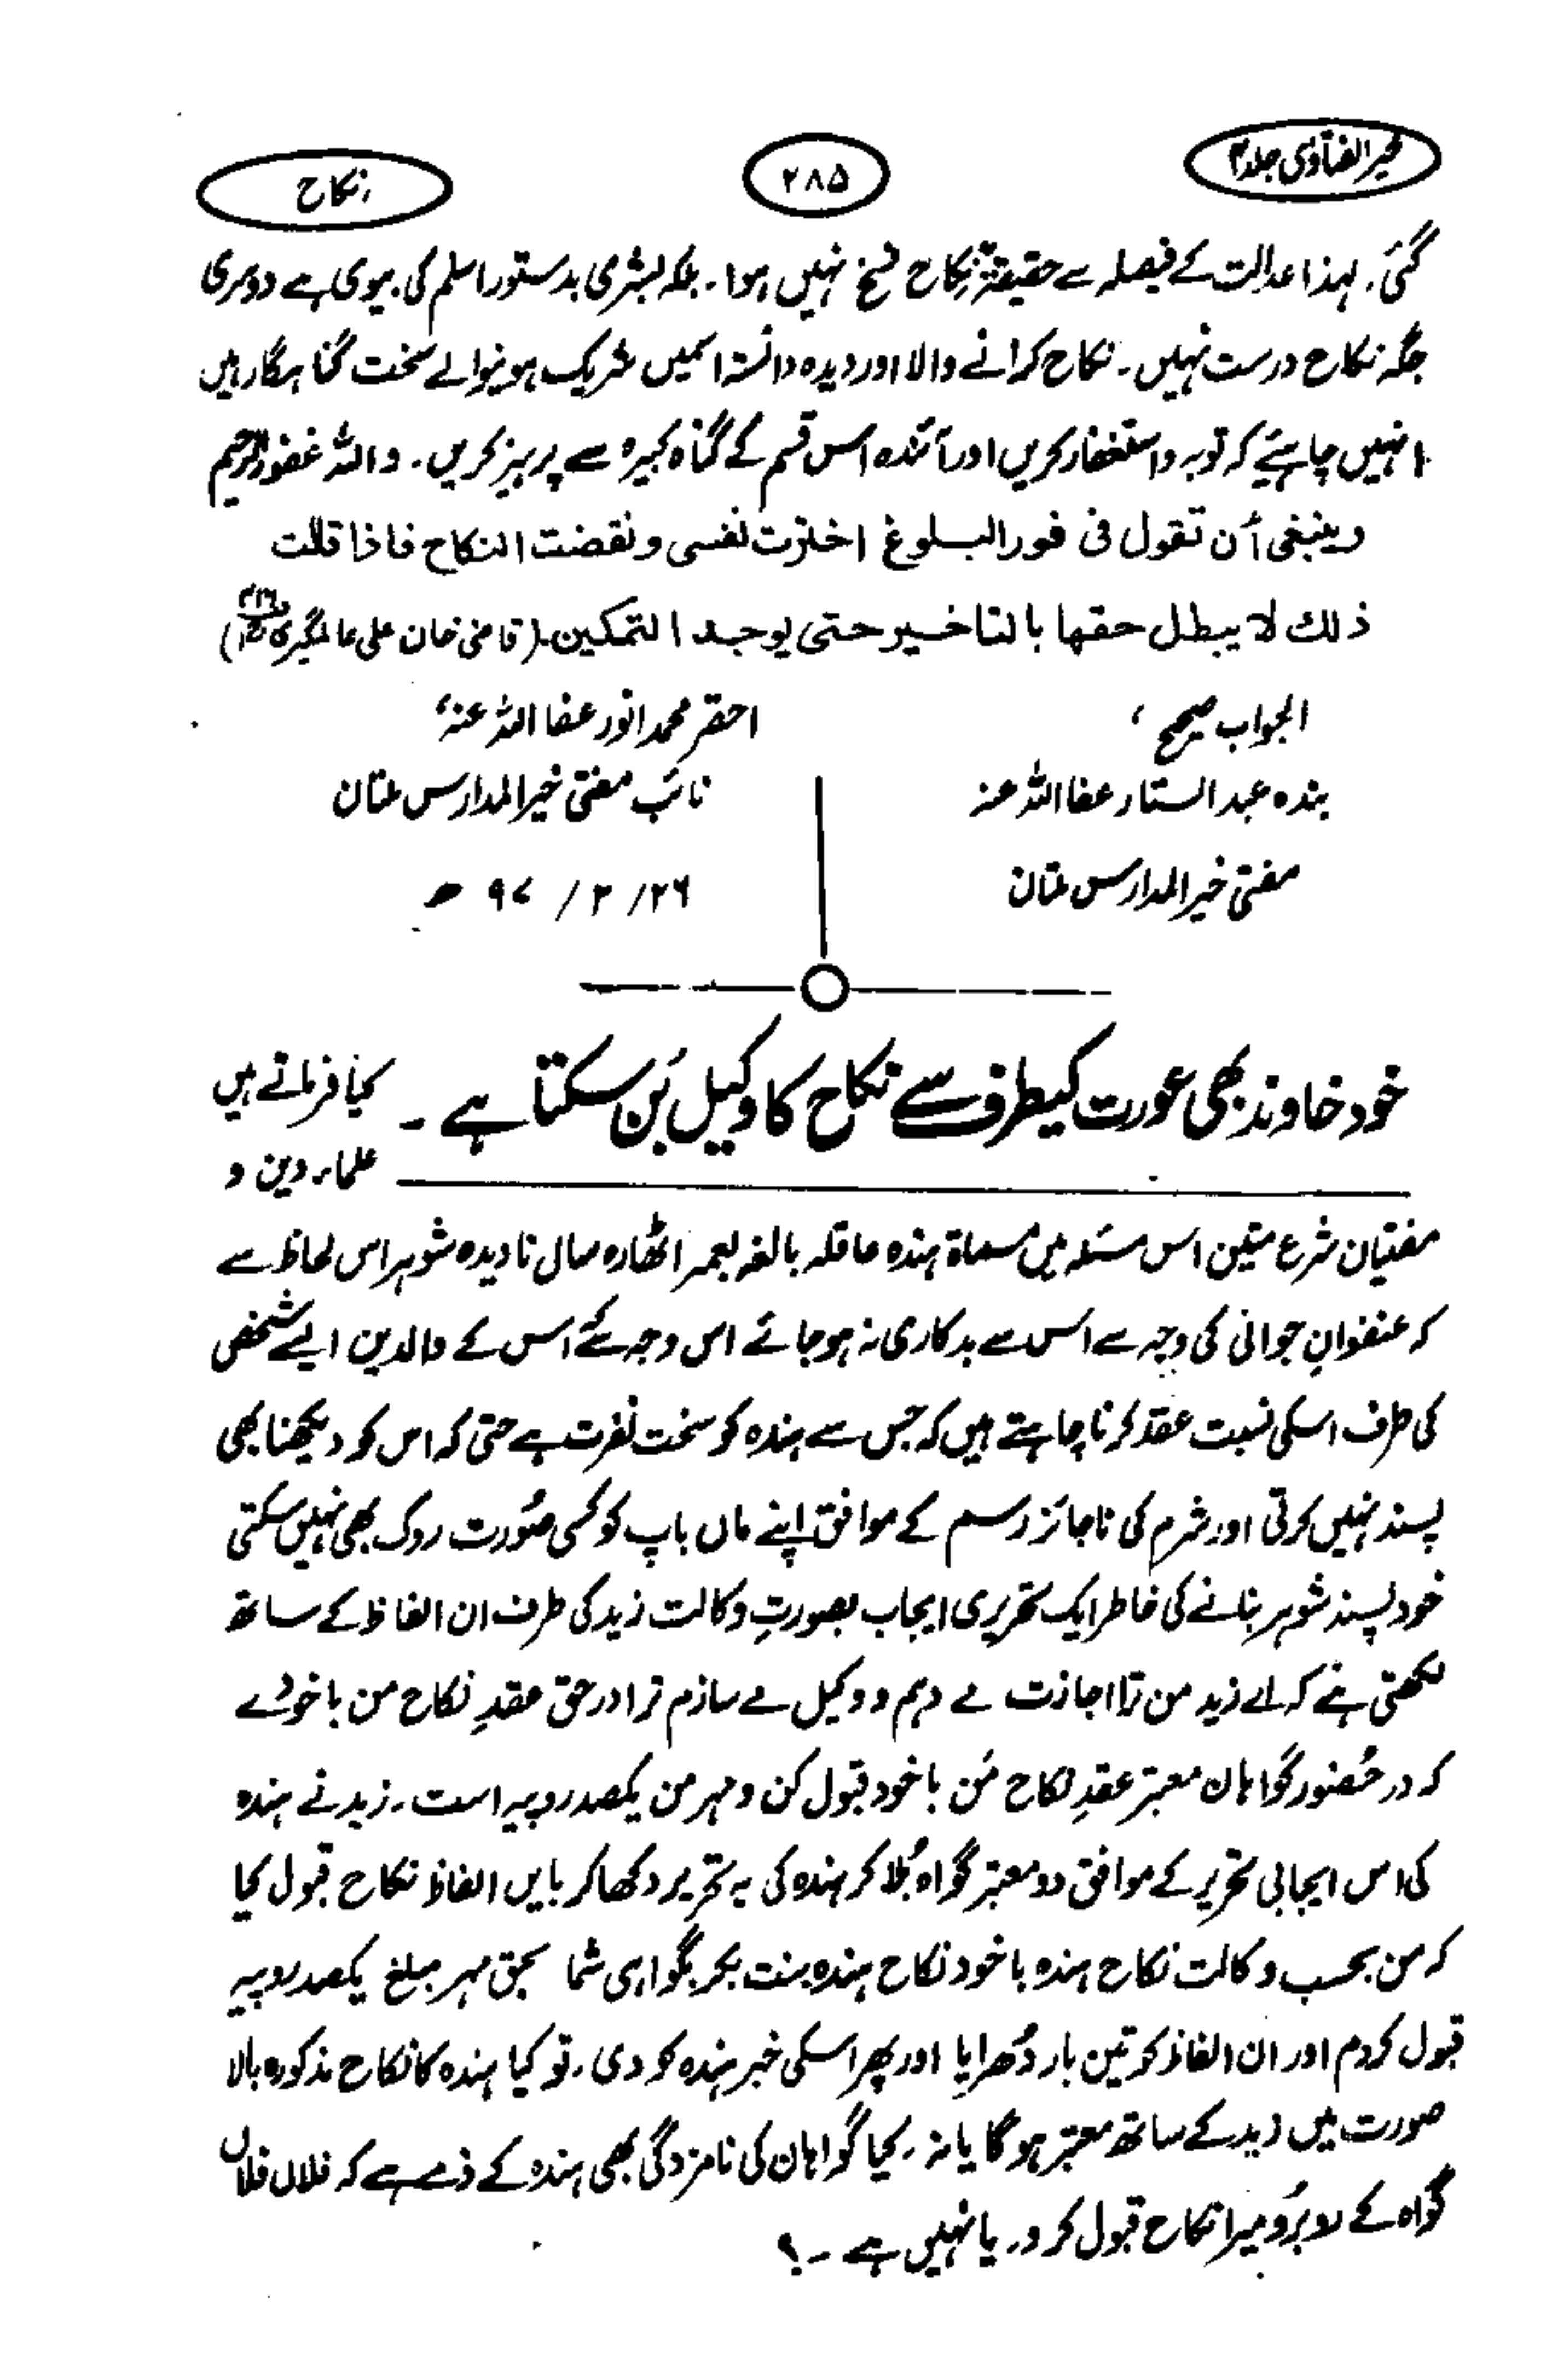 خیر الفتاوی جلد ۴
۲۸۵
نکاح
گئی۔ لہذا عدالت کے فیصلہ سے حقیقۃً نکاح فسخ نہیں ہوا۔ بلکہ بشری بدستور اسلم کی بیوی ہے دوسری
جگہ نکاح درست نہیں۔ نکاح کرانے والا اور دیدہ دانستہ اسمیں شریک ہونیوالے سخت گناہگار ہیں
انہیں چاہیئے کہ توبہ و استغفار کریں اور آئندہ اس قسم کے گناہ کبیرہ سے پرہیز کریں۔ واللہ غفور رحیم
وینبغی أن تقول فی فور البلوغ اخترت نفسی ونقضت النکاح فاذا قالت
ذلك لا یبطل حقھا بالتاخیر حتی یوجد التمکین۔ (قاضی خان علی عالمگیری
الجواب صحیح ،
احقر محمد انور عفا اللہ عنہ،
بندہ عبد الستار عفا اللہ عنہ
نائب مفتی خیر المدارس ملتان
مفتی خیر المدارس ملتان
۲۶/ ۲ / ۹۷ ھ
خود خاوند بھی عورت کیطرف سے نکاح کا وکیل بَن سکتا ہے ۔ کیا فرماتے ہیں
علماء دین و
مفتیان شرع متین اس مسئلہ میں مسماۃ ہندہ عاقلہ بالغہ بعمر اٹھارہ سال نادیدہ شوہر اس لحاظ سے
کہ عنفوانِ جوانی کی وجہ سے اس سے بدکاری نہ ہو جائے اس وجہ کے اس کے والدین ایسے شخص
کی طرف اسکی نسبت عقد کرنا چاہتے ہیں کہ جس سے ہندہ کو سخت نفرت ہے حتی کہ اس کو دیکھنا بھی
پسند نہیں کرتی اور شرم کی ناجائز رسم کے موافق اپنے ماں باپ کو کسی صُورت روک بھی نہیں سکتی
خود پسند شوہر بنانے کی خاطر ایک تحریری ایجاب بصورتِ وکالت زید کی طرف ان الفاظ کے ساتھ
لکھتی ہے کہ اے زید من ترا اجازت مے دہم و وکیل مے سازم ترا در حق عقدِ نکاح من با خودے
کہ در حُضور گواہان معتبر عقدِ نکاح مَن با خود قبول کن و مہر من یکصد روپیہ است۔ زید نے ہندہ
کی اس ایجابی تحریر کے موافق دو معتبر گواہ بُلا کر ہندہ کی یہ تحریر دکھا کر بایں الفاظ نکاح قبول کیا
کہ من بحسب وکالت نکاح ہندہ با خود نکاح ہندہ بنت بکر بگواہی شما بحق مہر مبلغ یکصد روپیہ
قبول کردم اور ان الفاظ کو تین بار دُھرایا اور پھر اسکی خبر ہندہ کو دی۔ تو کیا ہندہ کا نکاح مذکورہ بالا
صورت میں زید کے ساتھ معتبر ہو گا یا نہ۔ کیا گواہان کی نامزدگی بھی ہندہ کے ذمے ہے کہ فلاں فلاں
گواہ کے روبرُو میرا نکاح قبول کرو۔ یا نہیں ہے ۔؟